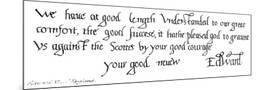 We have at good length Understanded to our great
comfort, the good success, it hathe pleased god to graunt
Us against the Scottes by your good courage
your good neuew Edward